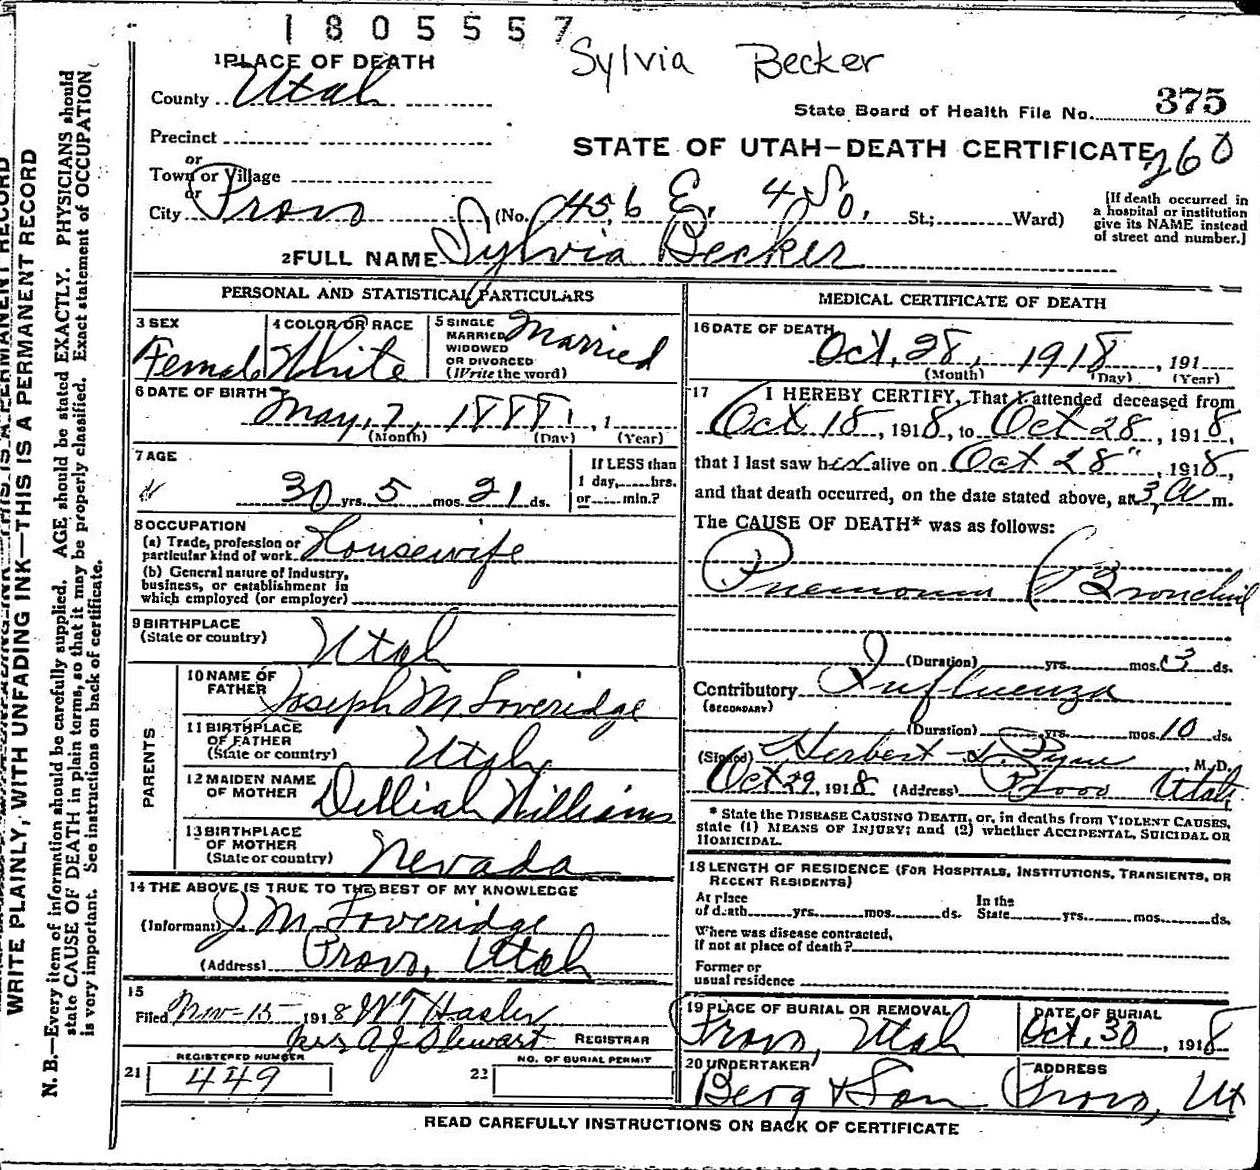 1805557
Sylvia Becker
1 PLACE OF DEATH
County Utah
State Board of Health File No. 375
Precinct
STATE OF UTAH—DEATH CERTIFICATE
260
or
Town or Village
or
City Provo (No. 456 E. 4 So. St.; Ward)
[If death occurred in
a hospital or institution
give its NAME instead
of street and number.]
2 FULL NAME Sylvia Becker
PERSONAL AND STATISTICAL PARTICULARS
3 SEX
Female
4 COLOR OR RACE
White
5 SINGLE
MARRIED
WIDOWED
OR DIVORCED
(Write the word)
Married
6 DATE OF BIRTH May, 7, 1888, 1
(Month) (Day) (Year)
7 AGE
30 yrs. 5 mos. 21 ds.
If LESS than
1 day, hrs.
or min.?
8 OCCUPATION
(a) Trade, profession or
particular kind of work. Housewife
(b) General nature of industry,
business, or establishment in
which employed (or employer)
9 BIRTHPLACE
(State or country) Utah
PARENTS
10 NAME OF
FATHER Joseph M. Loveridge
11 BIRTHPLACE
OF FATHER
(State or country) Utah
12 MAIDEN NAME
OF MOTHER Delliah Williams
13 BIRTHPLACE
OF MOTHER
(State or country) Nevada
14 THE ABOVE IS TRUE TO THE BEST OF MY KNOWLEDGE
(Informant) J. M. Loveridge
(Address) Provo, Utah
15
Filed Nov-15- 1918 W T Hasler
per A J Stewart REGISTRAR
21 REGISTERED NUMBER
449
22 NO. OF BURIAL PERMIT
MEDICAL CERTIFICATE OF DEATH
16 DATE OF DEATH
Oct. 28, 1918, 191
(Month) (Day) (Year)
17 I HEREBY CERTIFY, That I attended deceased from
Oct 18, 1918, to Oct 28, 1918,
that I last saw her alive on Oct 28", 1918,
and that death occurred, on the date stated above, at 3, a m.
The CAUSE OF DEATH* was as follows:
Pneumonia (Bronchial
(Duration) yrs. mos. 3 ds.
Contributory Influenza
(SECONDARY)
(Duration) yrs. mos. 10 ds.
(Signed) Herbert S. Pyne, M. D.
Oct 29, 1918 (Address) Provo Utah
* State the DISEASE CAUSING DEATH, or, in deaths from VIOLENT CAUSES,
state (1) MEANS OF INJURY; and (2) whether ACCIDENTAL, SUICIDAL OR
HOMICIDAL.
18 LENGTH OF RESIDENCE (FOR HOSPITALS, INSTITUTIONS, TRANSIENTS, OR
RECENT RESIDENTS)
At place
of death yrs. mos. ds.
In the
State yrs. mos. ds.
Where was disease contracted,
if not at place of death?
Former or
usual residence
19 PLACE OF BURIAL OR REMOVAL
Provo, Utah
DATE OF BURIAL
Oct. 30, 1918
20 UNDERTAKER
Berg & Son
ADDRESS
Provo, Ut
READ CAREFULLY INSTRUCTIONS ON BACK OF CERTIFICATE
WRITE PLAINLY, WITH UNFADING INK—THIS IS A PERMANENT RECORD
N. B.—Every item of information should be carefully supplied. AGE should be stated EXACTLY. PHYSICIANS should
state CAUSE OF DEATH in plain terms, so that it may be properly classified. Exact statement of OCCUPATION
is very important. See instructions on back of certificate.